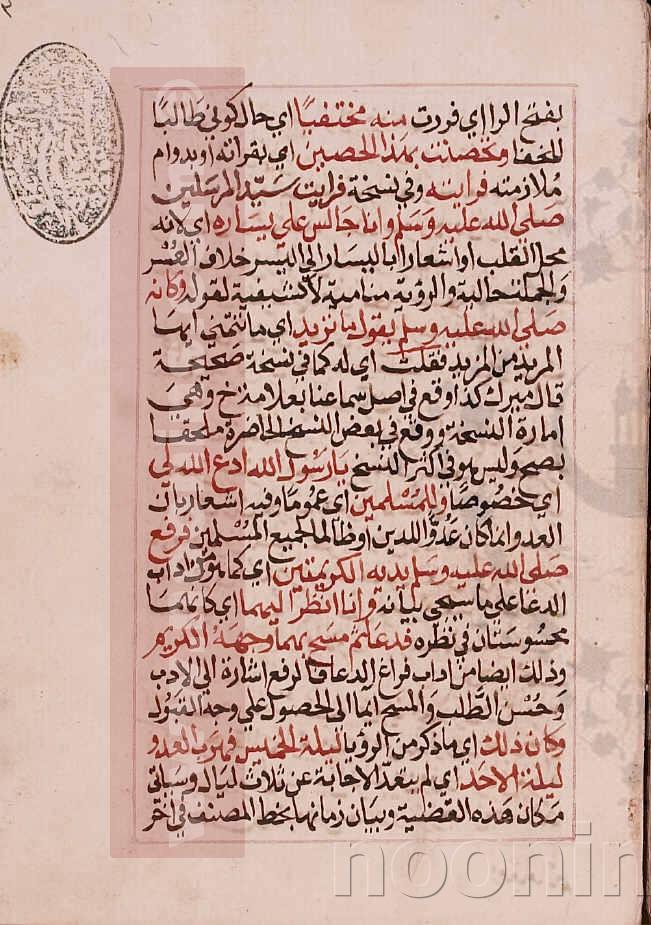 بفتح الرا اي فررت منه مختفيًا اي حال كوني طَالبًا
للخفا وتحصنت بهذا الحصين اي بقراته او بدوام
مُلازمته فرايته وفي نسخة فرايت سَيّد المرسَلين
صَلي الله عليه وَسَلم وانا جالس علي يسَاره اي لانه
محل القلب او اشعارا باليسار الي اليسر خلاف العُسْر
وَالجملة حالية والرؤية منامية لا كشفية لقوله وكانه
صَلي الله عليه وسلم يقول ما تزيد اي ما تتمني ايها
المريد من المزيد فقلت اي له كما في نسخة صحيحة
قال ميرك كذا وقع في اصل سماعنا بعلامة خ وهيَ
امارة النسخة ووقع في بعض النسخ الحاضرة ملحقا
بصح وَليس هو في اكثر النسخ يا رَسُول الله ادع الله لي
اي خصُوصًا وللمُسْلمين اي عمُومًا وفيه اشعار بان
العدو انما كان عُدوًّا للدين او ظالما لجميع المسْلمين فرفع
صَلي الله عليه وسَلم يديه الكريمتين اي كما هو من اداب
الدعا علي ما سيجي بيانه وَانا انظر اليهما اي كانهما
محسُوستان في نظره فدعا ثم مسَح بهما وجهَه الكريم
وذلك ايضا من اداب فراغ الدعا فالرفع اشارة الي الادب
وَحُسْن الطّلب وَالمسْح ايما الي الحصول علي وجه القبول
وكان ذلك اي ما ذكر من الرؤيا ليلة الخميس فهرب العدو
ليلة الاحد اي لم يبعد الاجابة عن ثلاث ليال وسياتي
مكان هذه القضية وبيان زمانها بخط المصنف في اخر
noonin